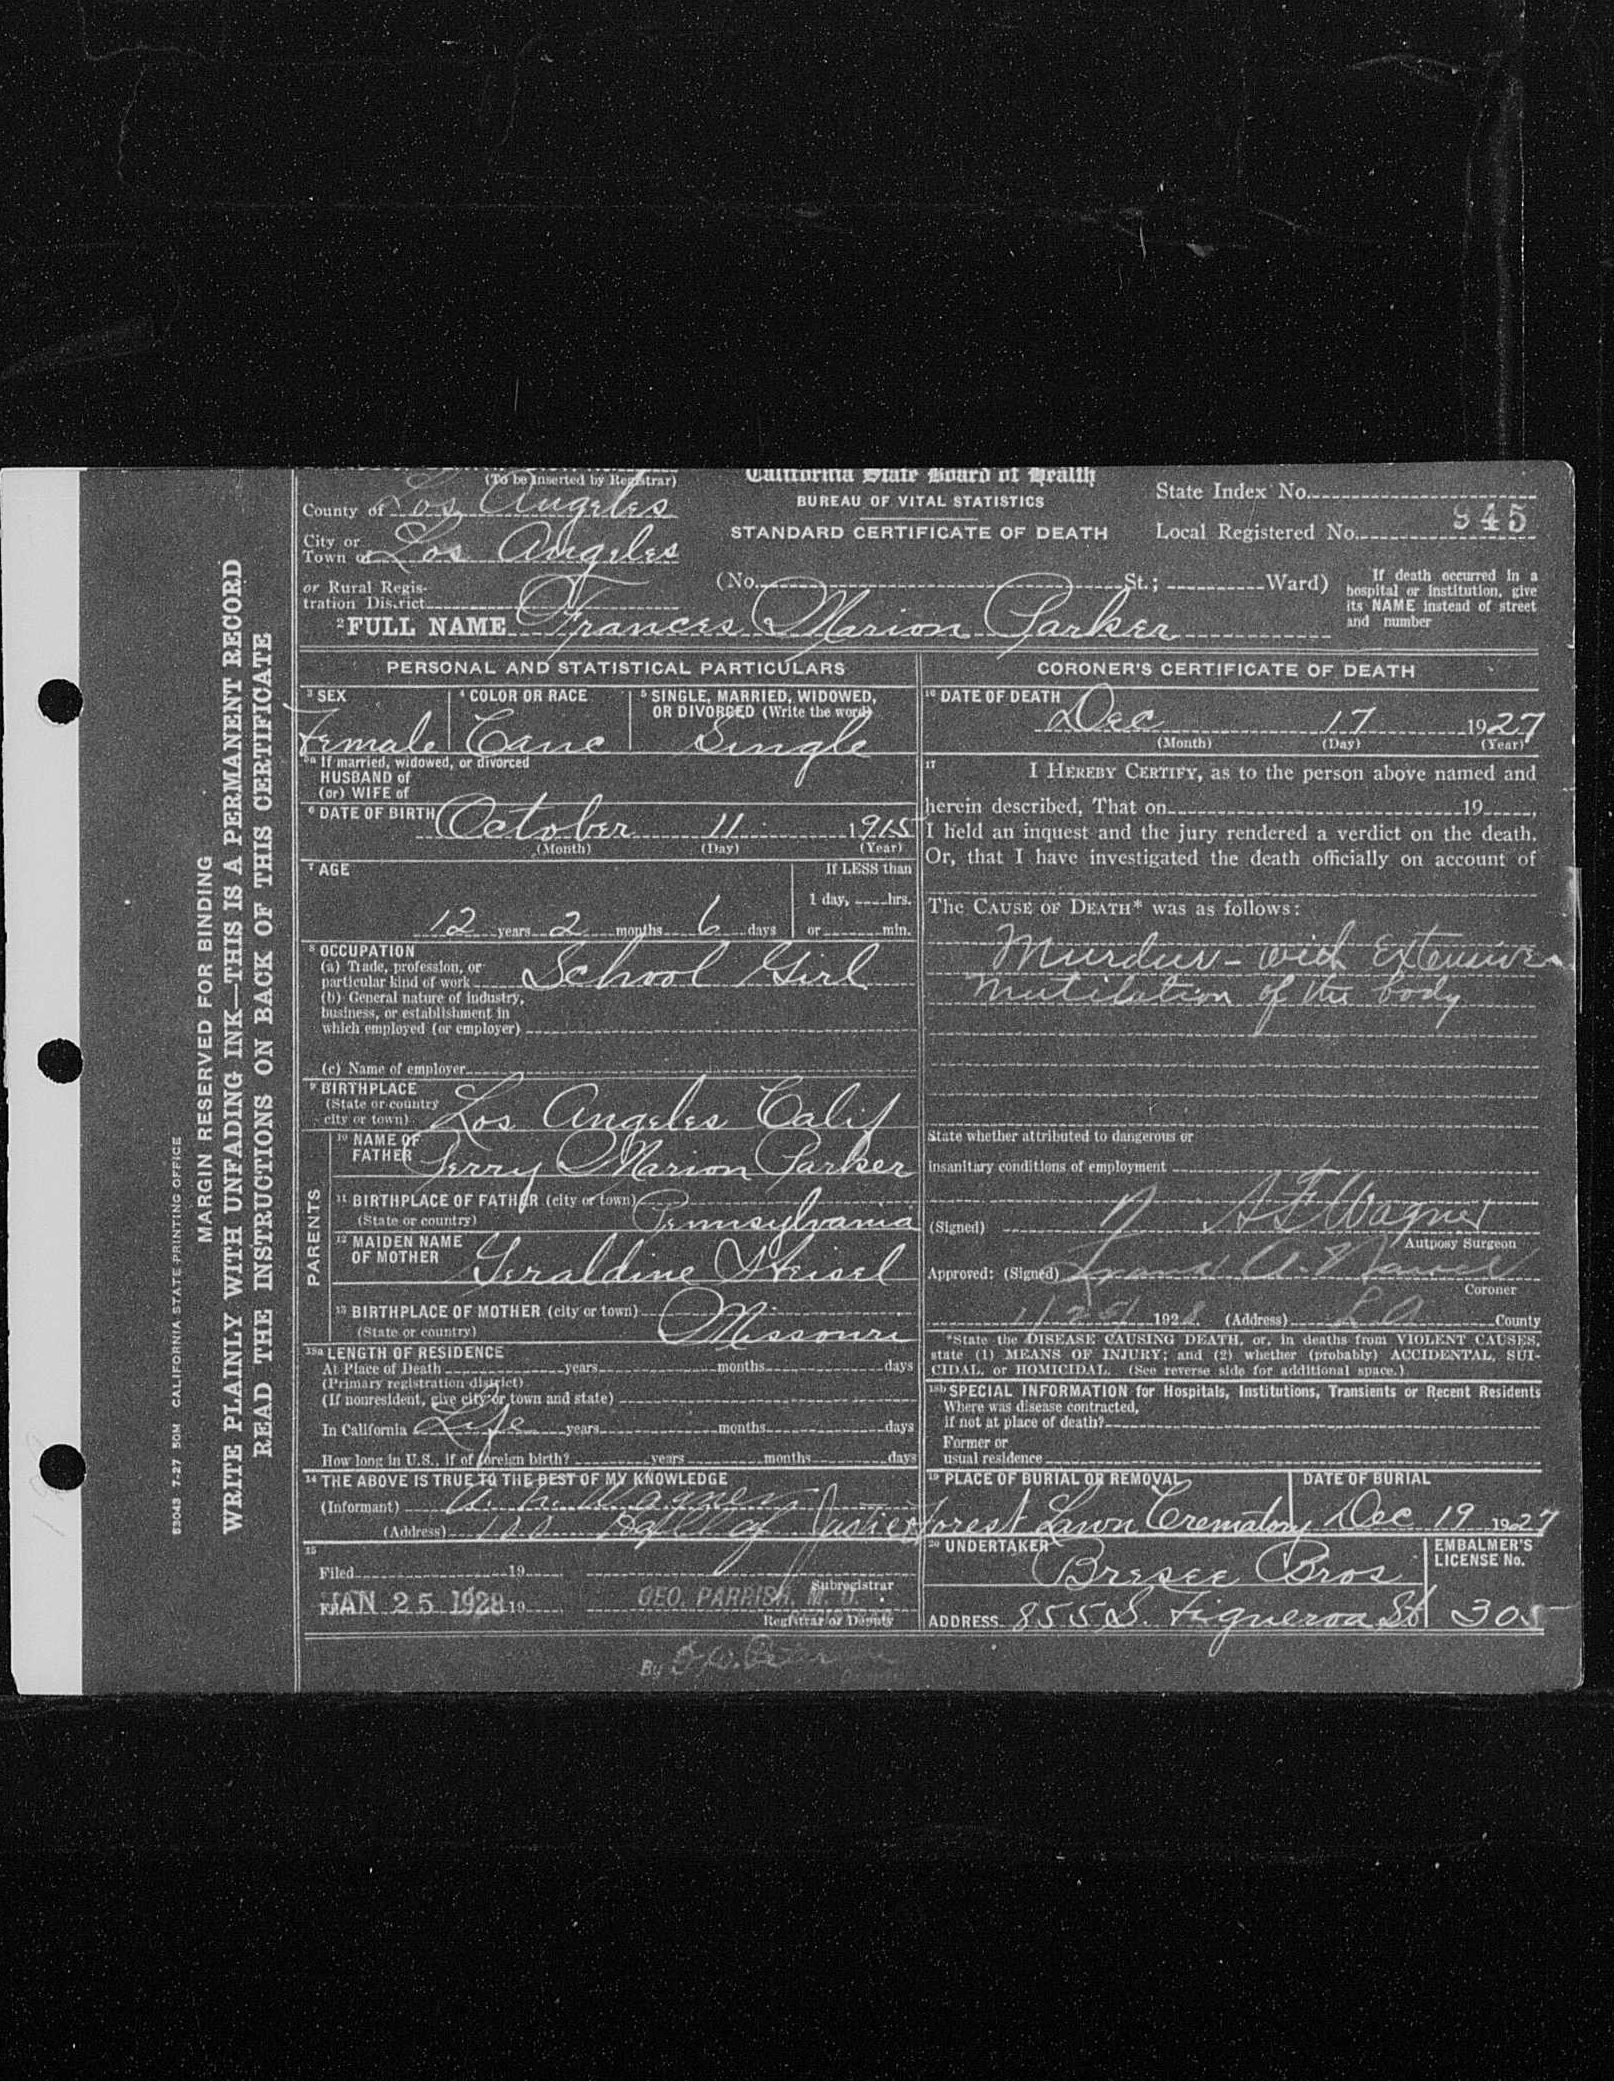 (To be Inserted by Registrar)
County of Los Angeles
City or
Town of Los Angeles
or Rural Regis-
tration District
California State Board of Health
BUREAU OF VITAL STATISTICS
STANDARD CERTIFICATE OF DEATH
State Index No.
Local Registered No. 345
(No. St.; Ward)
If death occurred in a
hospital or institution, give
its NAME instead of street
and number
2 FULL NAME Frances Marion Parker
PERSONAL AND STATISTICAL PARTICULARS
3 SEX
Female
4 COLOR OR RACE
Cauc
5 SINGLE, MARRIED, WIDOWED,
OR DIVORCED (Write the word)
Single
5a If married, widowed, or divorced
HUSBAND of
(or) WIFE of
6 DATE OF BIRTH October 11 1915
(Month) (Day) (Year)
7 AGE
12 years 2 months 6 days
If LESS than
1 day, hrs.
or min.
8 OCCUPATION
(a) Trade, profession, or
particular kind of work School Girl
(b) General nature of industry,
business, or establishment in
which employed (or employer)
(c) Name of employer
9 BIRTHPLACE
(State or country
city or town) Los Angeles Calif
PARENTS
10 NAME OF
FATHER Perry Marion Parker
11 BIRTHPLACE OF FATHER (city or town)
(State or country) Pennsylvania
12 MAIDEN NAME
OF MOTHER Geraldine Heisel
13 BIRTHPLACE OF MOTHER (city or town)
(State or country) Missouri
13a LENGTH OF RESIDENCE
At Place of Death years months days
(Primary registration district)
(If nonresident, give city or town and state)
In California Life years months days
How long in U.S., if of foreign birth? years months days
14 THE ABOVE IS TRUE TO THE BEST OF MY KNOWLEDGE
(Informant) Wagner
(Address) Hall of Justice
15
Filed 19
Subregistrar
JAN 25 1928 19
GEO. PARRISH, M. D.
Registrar or Deputy
By
CORONER'S CERTIFICATE OF DEATH
16 DATE OF DEATH
Dec 17 1927
(Month) (Day) (Year)
17 I HEREBY CERTIFY, as to the person above named and
herein described, That on 19
I held an inquest and the jury rendered a verdict on the death.
Or, that I have investigated the death officially on account of
The CAUSE OF DEATH* was as follows:
Murder - with Extensive
Mutilation of the body
State whether attributed to dangerous or
insanitary conditions of employment
(Signed) A F Wagner
Autposy Surgeon
Approved: (Signed) Frank A. Nance
Coroner
1928. (Address) L A County
*State the DISEASE CAUSING DEATH, or, in deaths from VIOLENT CAUSES,
state (1) MEANS OF INJURY; and (2) whether (probably) ACCIDENTAL, SUI-
CIDAL, or HOMICIDAL. (See reverse side for additional space.)
18b SPECIAL INFORMATION for Hospitals, Institutions, Transients or Recent Residents
Where was disease contracted,
if not at place of death?
Former or
usual residence
19 PLACE OF BURIAL OR REMOVAL
Forest Lawn Crematory
DATE OF BURIAL
Dec 19 1927
20 UNDERTAKER
Bresee Bros
ADDRESS 855 S. Figueroa St
EMBALMER'S
LICENSE No.
305
MARGIN RESERVED FOR BINDING
WRITE PLAINLY WITH UNFADING INK—THIS IS A PERMANENT RECORD
READ THE INSTRUCTIONS ON BACK OF THIS CERTIFICATE
53043 7-27 50M CALIFORNIA STATE PRINTING OFFICE